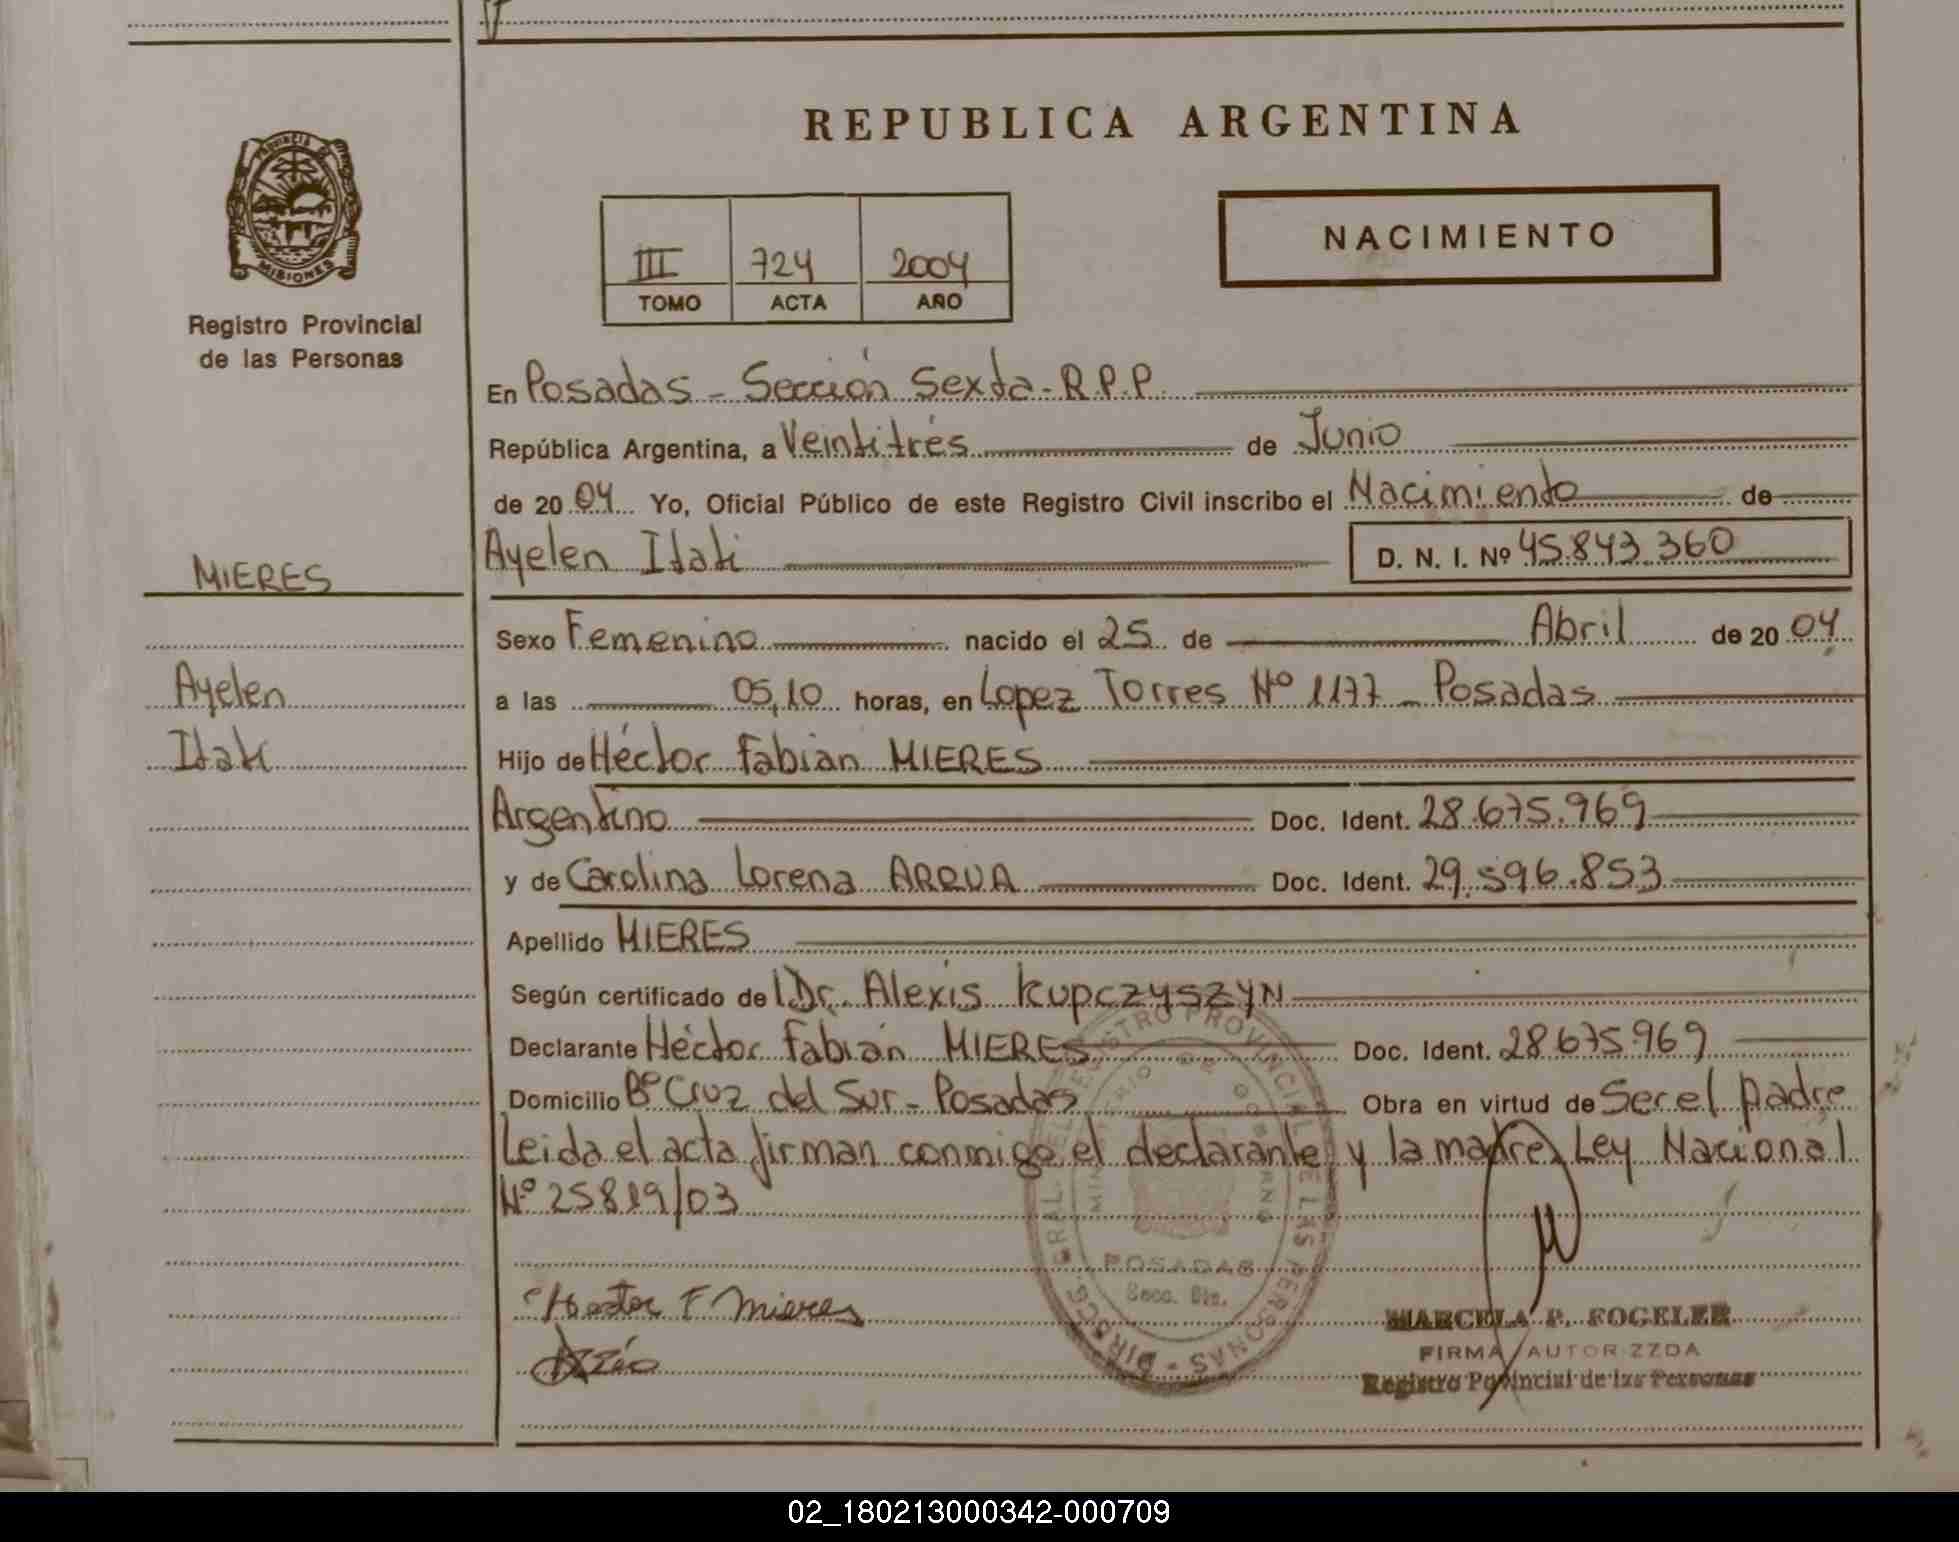 REPUBLICA ARGENTINA
PROVINCIA DE
MISIONES
Registro Provincial
de las Personas
III 724 2004
TOMO ACTA AÑO
NACIMIENTO
En Posadas - Sección Sexta - R.P.P.
República Argentina, a Veintitrés de Junio
de 2004 Yo, Oficial Público de este Registro Civil inscribo el Nacimiento de
Ayelen Itati D. N. I. Nº 45.843.360
MIERES
Ayelen
Itati
Sexo Femenino nacido el 25 de Abril de 2004
a las 05,10 horas, en Lopez Torres Nº 1177 - Posadas
Hijo de Héctor Fabian MIERES
Argentino Doc. Ident. 28.675.969
y de Carolina Lorena ARRUA Doc. Ident. 29.596.853
Apellido MIERES
Según certificado de Dr. Alexis KUPCZYSZYN
Declarante Héctor Fabián MIERES Doc. Ident. 28.675.969
Domicilio Bº Cruz del Sur - Posadas Obra en virtud de Ser el padre
Leida el acta firman conmigo el declarante y la madre. Ley Nacional
Nº 25819/03
Hector F Mieres
POSADAS
MARCELA P. FOGELER
FIRMA AUTORIZZDA
Registro Povincial de las Personas
02_180213000342-000709